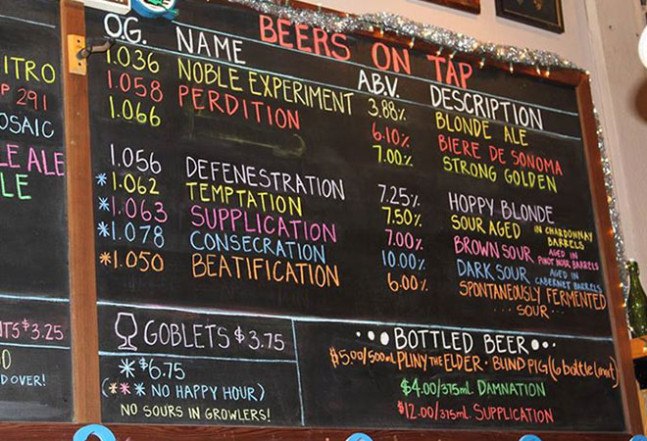 BEERS ON TAP
O.G. NAME A.B.V. DESCRIPTION
1.036 NOBLE EXPERIMENT 3.88% BLONDE ALE
1.058 PERDITION 6.10% BIERE DE SONOMA
1.066 7.00% STRONG GOLDEN
1.056 DEFENESTRATION 7.25% HOPPY BLONDE
*1.062 TEMPTATION 7.50% SOUR AGED IN CHARDONNAY BARRELS
*1.063 SUPPLICATION 7.00% BROWN SOUR AGED IN PINOT NOIR BARRELS
*1.078 CONSECRATION 10.00% DARK SOUR AGED IN CABERNET BARRELS
*1.050 BEATIFICATION 6.00% SPONTANEOUSLY FERMENTED
... SOUR ...
GOBLETS $3.75
* $6.75
(*** NO HAPPY HOUR)
NO SOURS IN GROWLERS!
BOTTLED BEER
$5.00/500mL PLINY THE ELDER · BLIND PIG (6 bottle limit)
$4.00/375mL DAMNATION
$12.00/375mL SUPPLICATION
ITRO
P 291
OSAIC
LE ALE
LE
TS $3.25
D
D OVER!